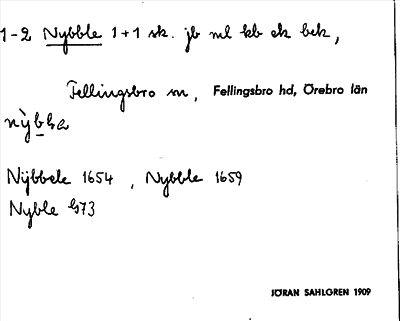 1-2 Nybble 1+1 sk. jb ml kb ek bek,
Fellingsbro sn, Fellingsbro hd, Örebro län
Nijbbele 1654, Nybble 1659
Nyble G73
JÖRAN SAHLGREN 1909